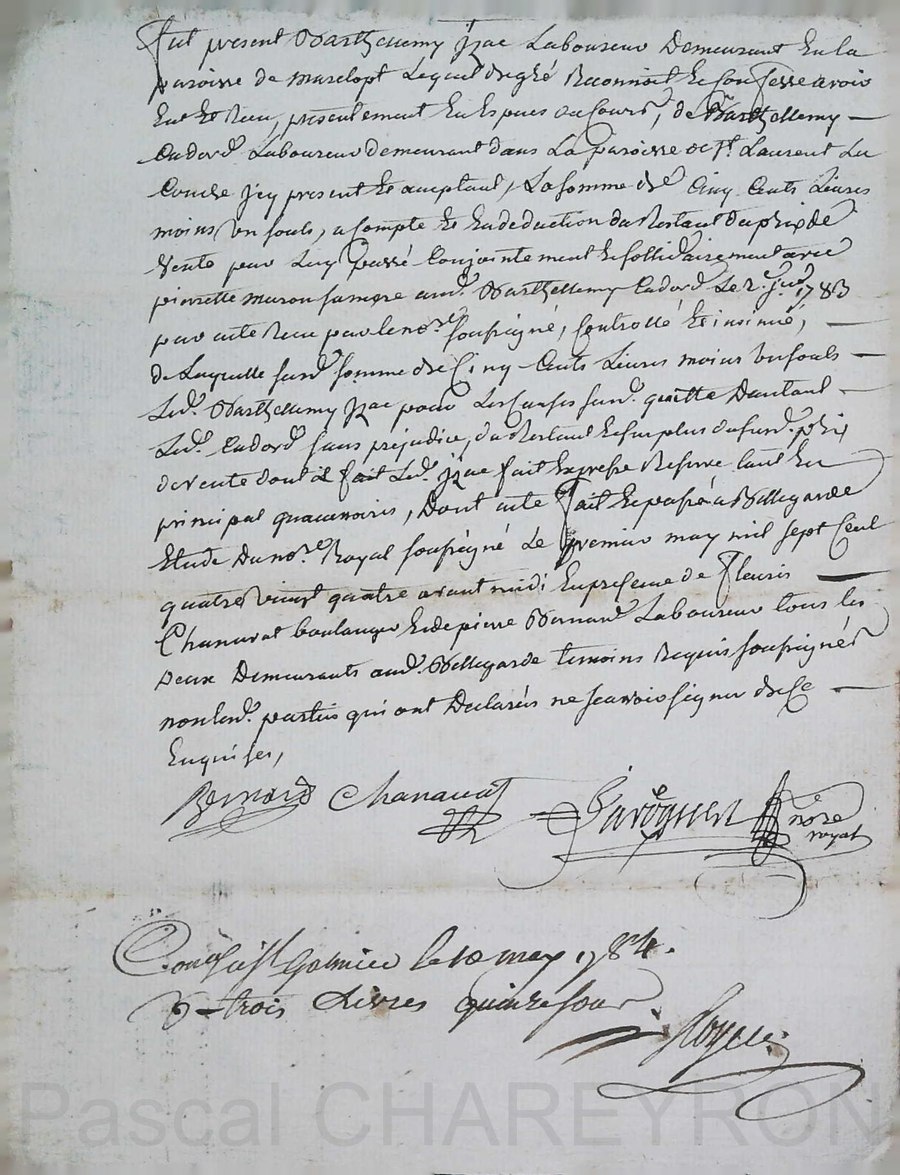 fut present Barthelemy jzac Laboureur Demeurant En la
paroisse de Marclopt Lequel de gré Reconnoit Et Confesse avoir
Eut Et Recu, presentement En Espaces au cours, de Barthelemy —
Cadord Laboureur demeurant dans La paroisse de St. Laurent La
Conche jcy present Et acceptant, La somme de Cinq Cents Livres
moins un souls, a compte Et En deduction du Restant du prix de
Vente par Luy passé Conjointement Et sollidairement avec
pierrette sa mere aud. Barthelemy Cadord Le 2. 1783
par acte Recu par le no.re soussigné, Controllé Et insinué, —
de Laquelle susd. somme de Cinq Cents Livres moins un souls —
Led. Barthelemy jzac pour Les Causes susd. quitte Dautant —
Led. Cadord sans prejudice, du Restant Et surplus du susd. prix
de vente dont il fait Led. jzac fait Expresse Reserve tant En
principal qu'accessoires, Dont acte fait Et passé a Bellegarde
Etude Du no.re Royal soussigné Le premier may mil sept Cent
quatre vingt quatre avant midi En presence de fleuris —
Chanavat boulanger Et de pierre Bernard Laboureur tous les
Deux Demeurants aud. Bellegarde temoins Requis soussignés
non les d. parties qui ont Declarés ne scavoir signer de Ce —
Enquises,
Bernard Chanavat no.re
royal
Con.le a St Galmier le 10 may 1784.
trois Livres quinze sous